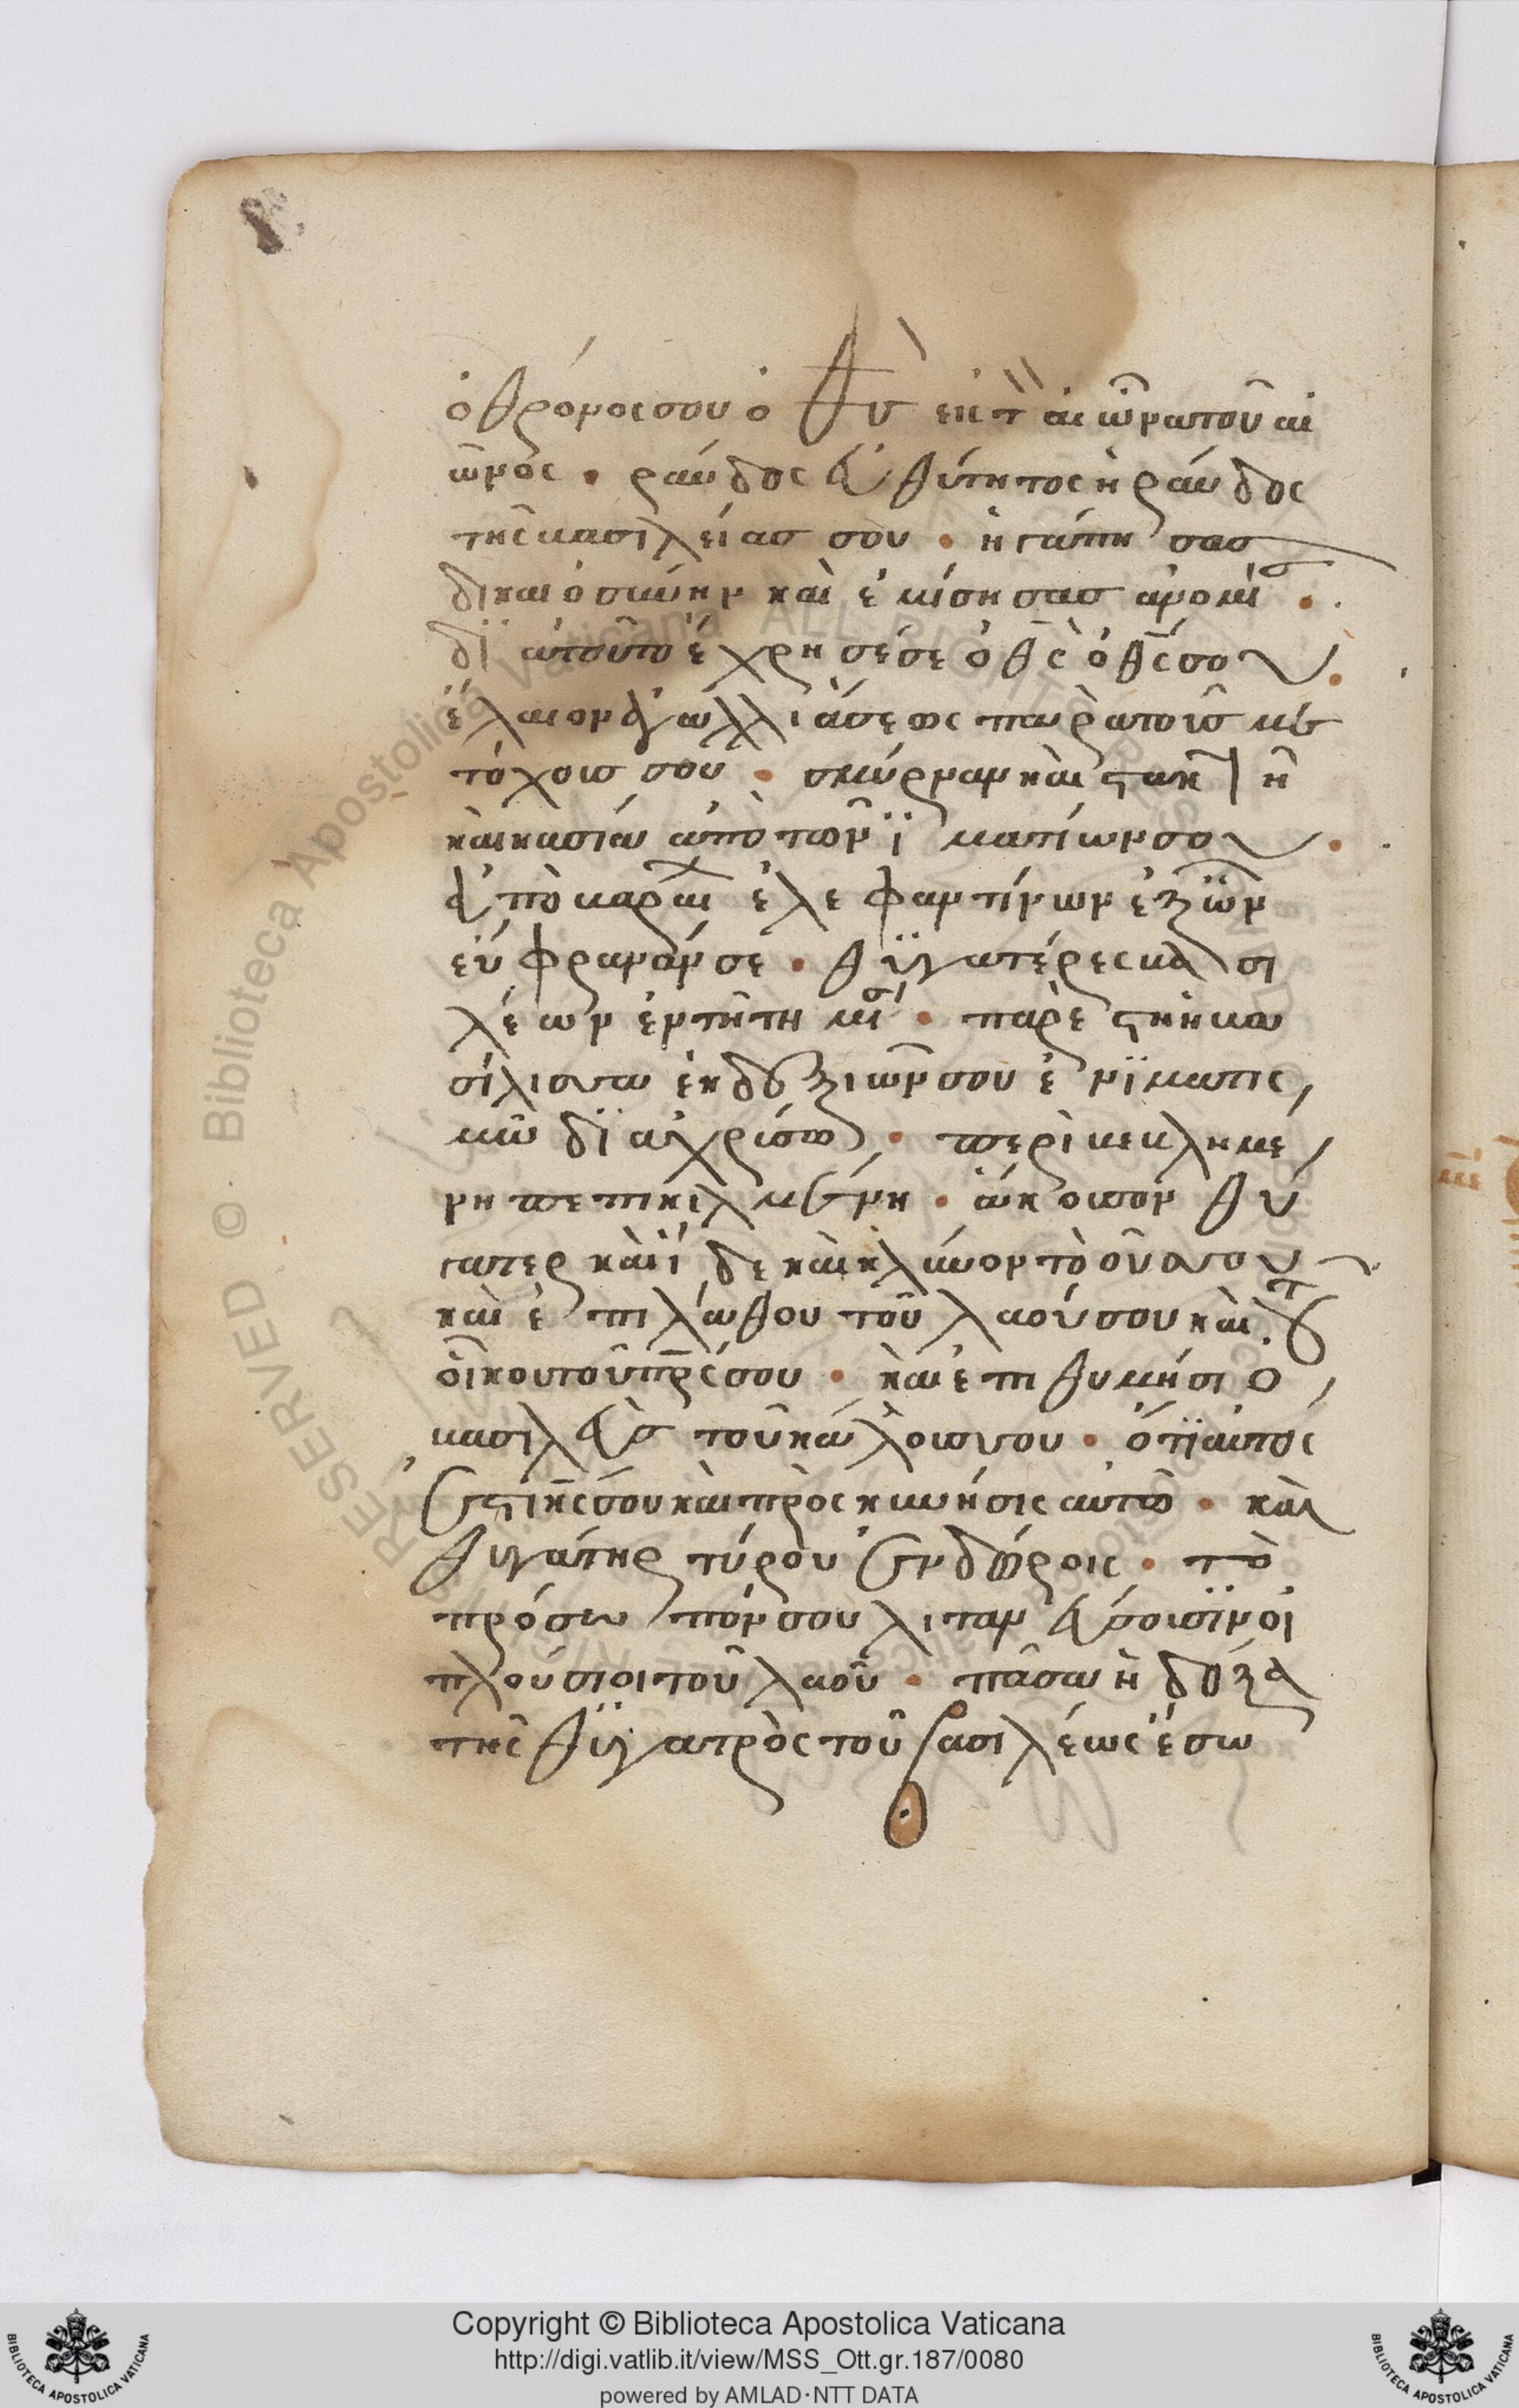 ὁ θρόνος σου ὁ θὺ εἰς τ̀ αἰῶνα τοῦ αἰ
ῶνος · ράυδος εὐθύτητος ἡ ράυδος
τῆς βασιλείας σου · ἠγάπησας
δικαιοσύνην καὶ ἐμίσησας ἀνομί ·
δϊατοῦτο ἔχρησέσε ὁ θς ὁ θς σου ·
ἔλαιον ἀγαλλιάσεως παρὰ τοῖς με
τόχοις σοῦ · σμύρναν καὶ στακτὴ
καὶ κασία ἀπὸ τῶν ϊματίων σου ·
ἀπὸ βαρέων ἐλεφαντίνων ἐξ ὧν
εύφρανάν σε · θϋγατέρες βασι
λέων ἐν τῆ τημῆ σ · παρέστη ἡ βα
σίλισσα ἐκ δεξιῶν σου ἐνϊματισ
μῶ δϊαχρίσω · περιβεβλημέ
νη πεπηκιλμένη · άκουσον θύ
γατερ καὶ ΐδε καὶ κλίνον τὸ οὖς σου
καὶ ἐπιλάθου τοῦ λαού σου καὶ τ
οἶκου τοῦ πρς σου · καὶ ἐπιθυμήσι ὁ
βασιλεὺς τοῦ κάλλους σου · ότϊ αυτὸς
ἐστι κς σου καὶ πρὸσκυνήσις αυτῶ · καὶ
θυγάτηρ τύρου ἐν δώροις · τὸ
πρόσωπόν σου λιταν εύσουσϊν οἱ
πλούσιοι τοῦ λαοῦ · πᾶσα ἡ δόξα
τῆς θϋγατρὸς τοῦ βασιλέως έσω
Copyright © Biblioteca Apostolica Vaticana
http://digi.vatlib.it/view/MSS_Ott.gr.187/0080
powered by AMLAD·NTT DATA